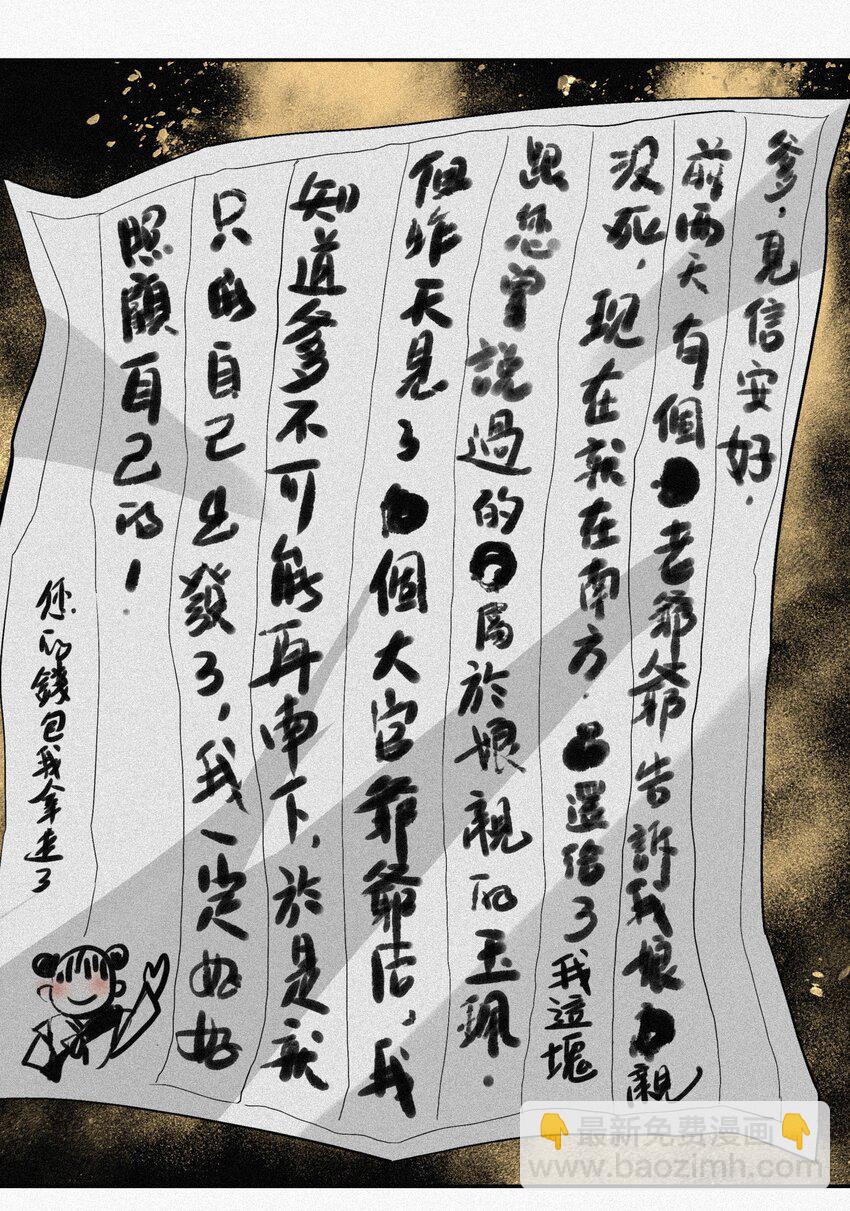 爹，見信安好．
前兩天有個老爺爺告訴我娘親
没死，现在就在南方．還給了我這塊
跟您曾說過的屬於娘親的玉珮．
但昨天見了個大官爺爺后，我
知道爹不可能再南下，於是就
只能自己出發了，我一定好好
照顧自己的！
您的錢包我拿走了
最新免费漫画
www.baozimh.com